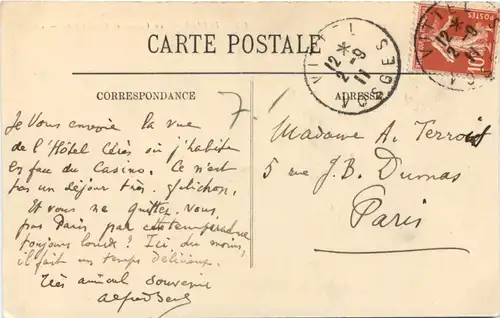 CARTE POSTALE
VITTEL
12 *
2 -9
11
VOSGES
POSTES
10
CORRESPONDANCE
ADRESSE
7.1
Je vous envoie la vue
de l'Hôtel Cérès où j'habite
en face du Casino. Ce n'est
pas un séjour très folichon.
Et vous ne quittez-vous
pas Paris par cette température
toujours lourde? Ici du moins,
il fait un temps délicieux.
Très amical souvenir
Alfred
Madame A. Terroir
5 rue J.B. Dumas
Paris